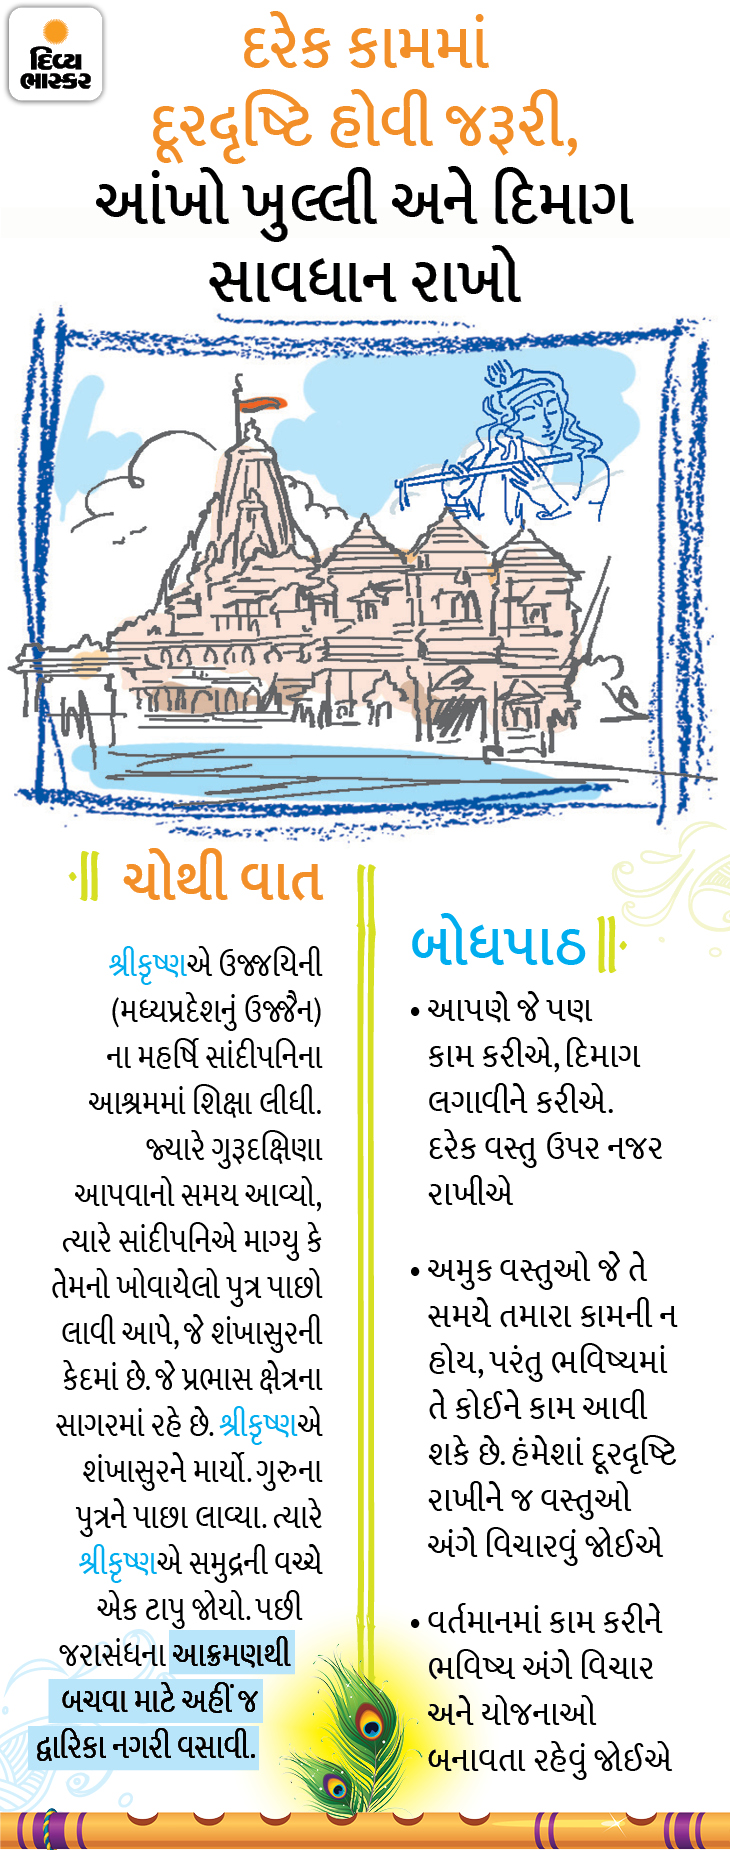 દિવ્ય
ભાસ્કર
દરેક કામમાં
દૂરદૃષ્ટિ હોવી જરૂરી,
આંખો ખુલ્લી અને દિમાગ
સાવધાન રાખો
ચોથી વાત
શ્રીકૃષ્ણએ ઉજ્જયિની
(મધ્યપ્રદેશનું ઉજ્જૈન)
ના મહર્ષિ સાંદીપનિના
આશ્રમમાં શિક્ષા લીધી.
જ્યારે ગુરૂદક્ષિણા
આપવાનો સમય આવ્યો,
ત્યારે સાંદીપનિએ માગ્યુ કે
તેમનો ખોવાયેલો પુત્ર પાછો
લાવી આપે, જે શંખાસુરની
કેદમાં છે. જે પ્રભાસ ક્ષેત્રના
સાગરમાં રહે છે. શ્રીકૃષ્ણએ
શંખાસુરને માર્યો. ગુરુના
પુત્રને પાછા લાવ્યા. ત્યારે
શ્રીકૃષ્ણએ સમુદ્રની વચ્ચે
એક ટાપુ જોયો. પછી
જરાસંધના આક્રમણથી
બચવા માટે અહીં જ
દ્વારિકા નગરી વસાવી.
બોધપાઠ
• આપણે જે પણ
કામ કરીએ, દિમાગ
લગાવીને કરીએ.
દરેક વસ્તુ ઉપર નજર
રાખીએ
• અમુક વસ્તુઓ જે તે
સમયે તમારા કામની ન
હોય, પરંતુ ભવિષ્યમાં
તે કોઈને કામ આવી
શકે છે. હંમેશાં દૂરદૃષ્ટિ
રાખીને જ વસ્તુઓ
અંગે વિચારવું જોઈએ
• વર્તમાનમાં કામ કરીને
ભવિષ્ય અંગે વિચાર
અને યોજનાઓ
બનાવતા રહેવું જોઈએ